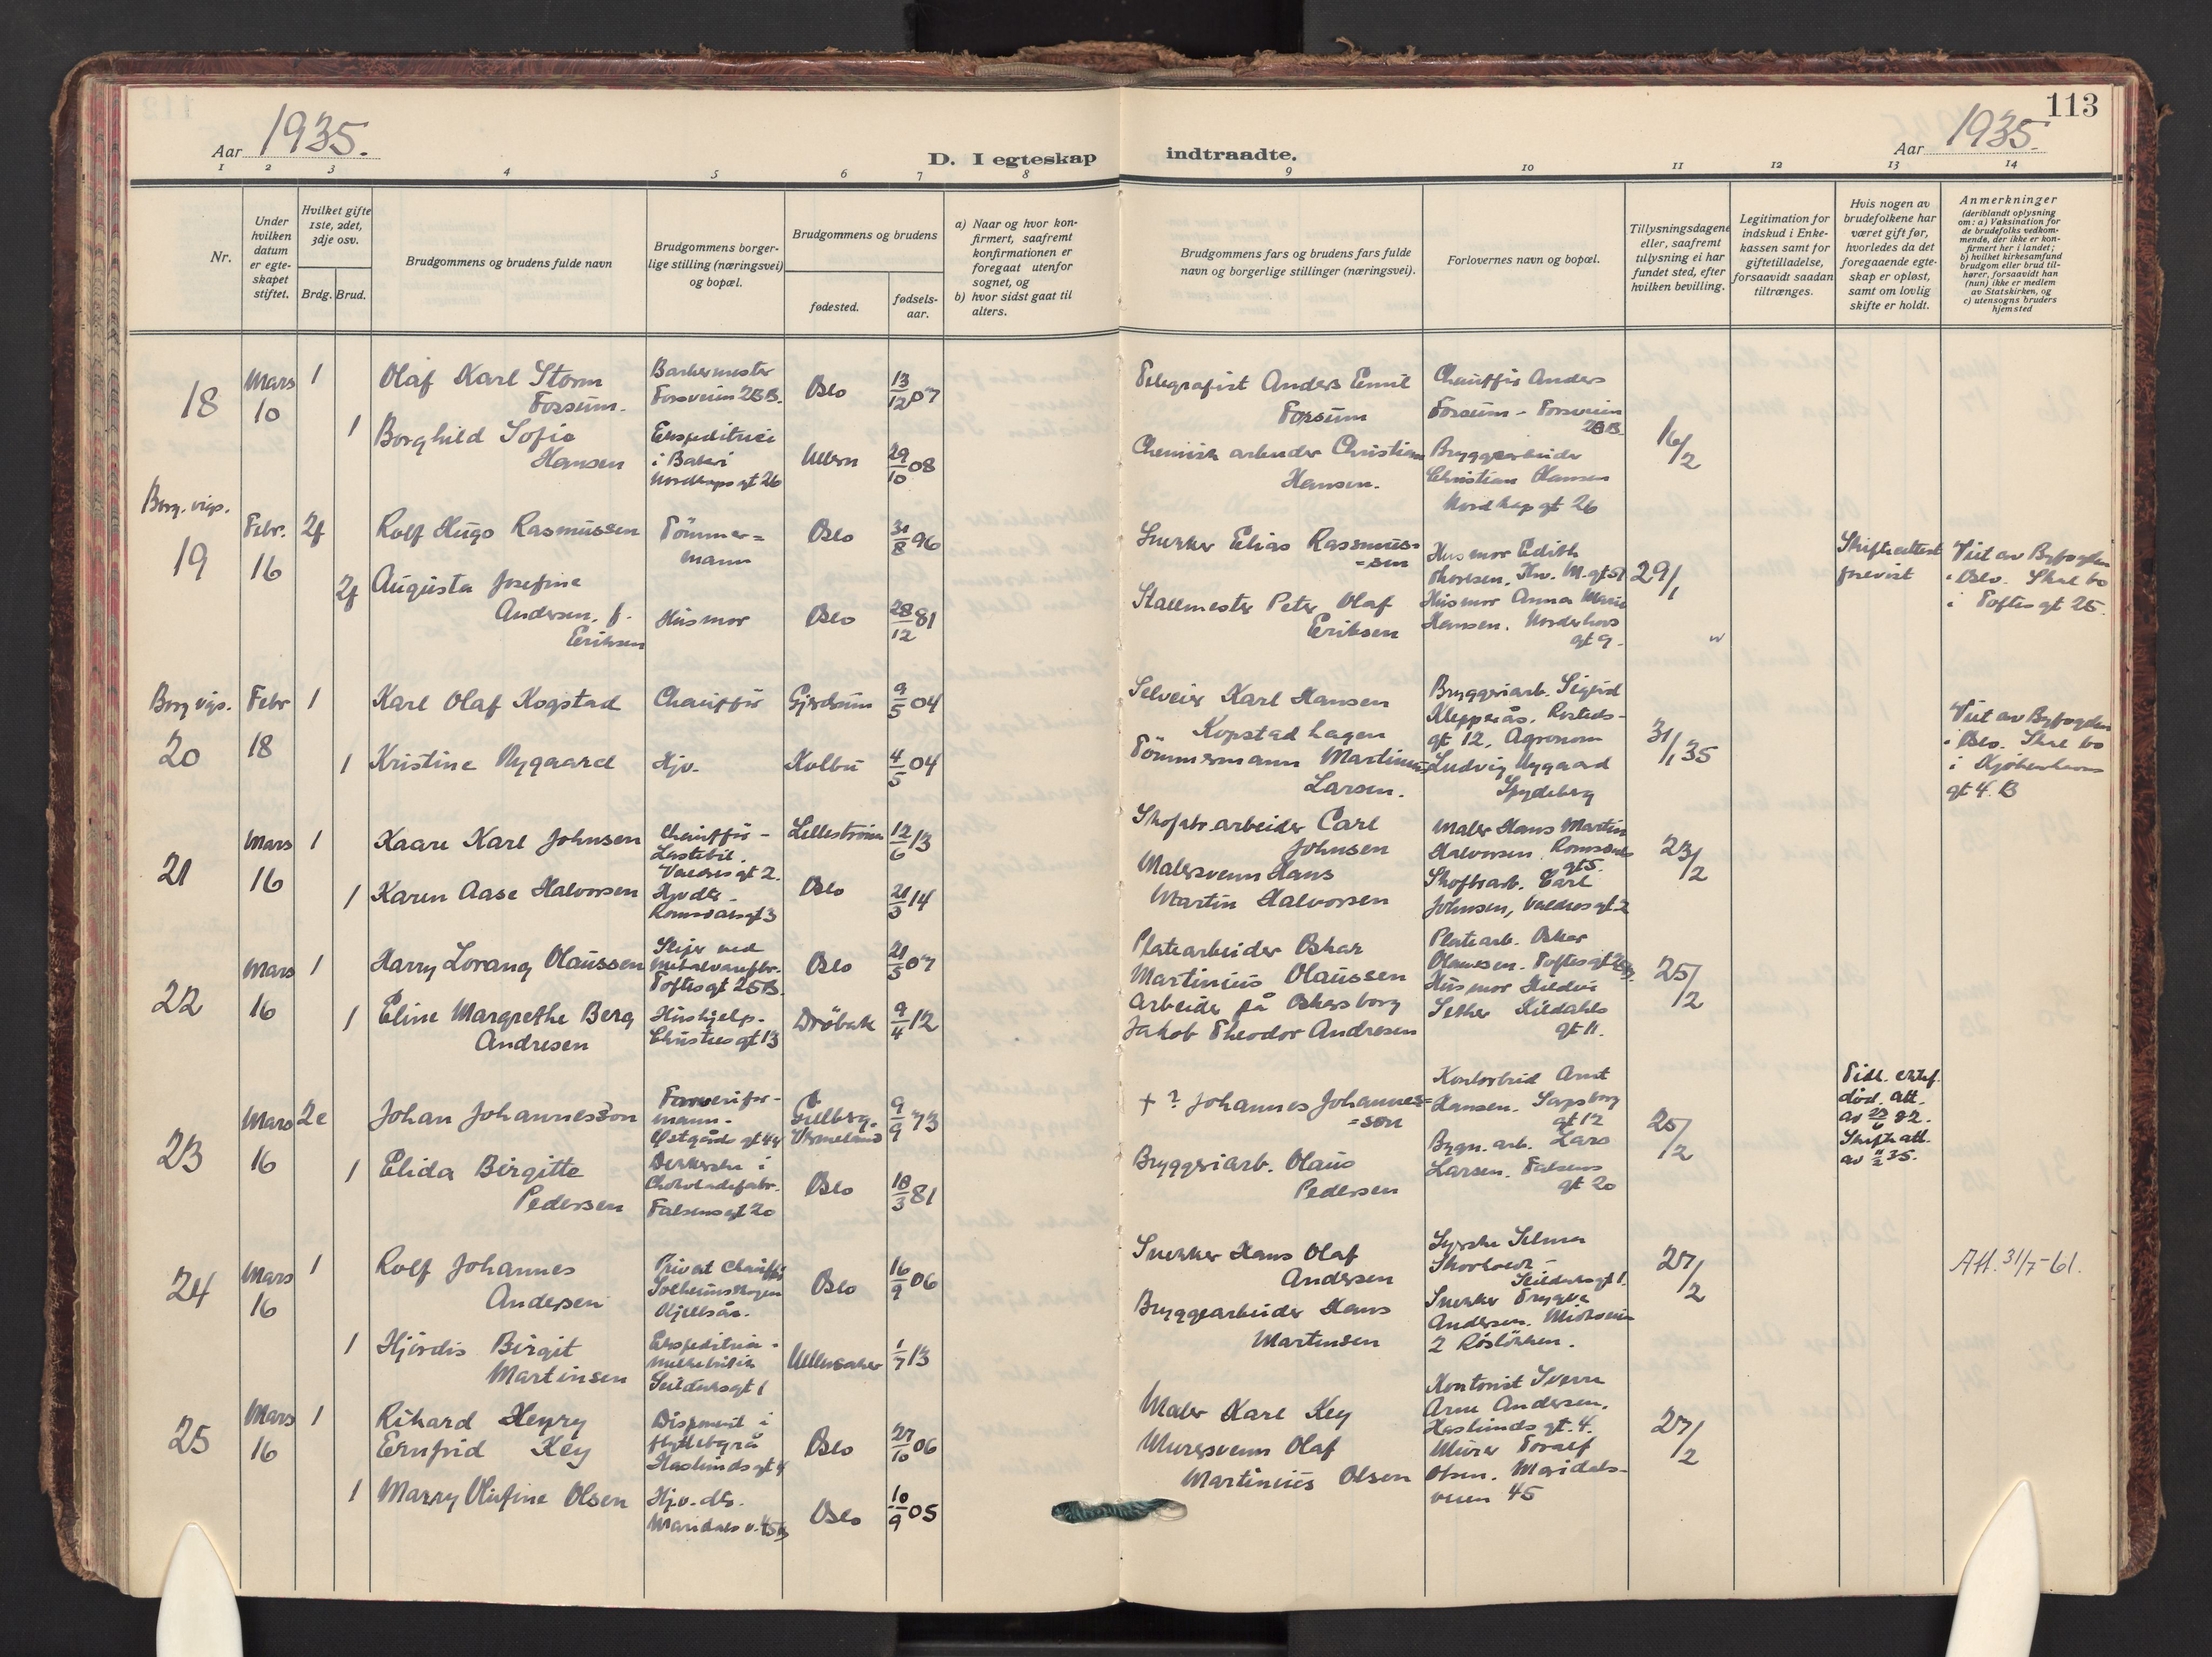 113
Aar 1935.
D. I egteskap indtraadte.
Aar 1935.
1 2 3 4 5 6 7 8 9 10 11 12 13 14
Nr.
Under
hvilken
datum
er egte-
skapet
stiftet.
Hvilket gifte
1ste, 2det,
3dje osv.
Brdg. Brud.
Brudgommens og brudens fulde navn
Brudgommens borger-
lige stilling (næringsvei)
og bopæl.
Brudgommens og brudens
fødested.
fødsels-
aar.
a) Naar og hvor kon-
firmert, saafremt
konfirmationen er
foregaat utenfor
sognet, og
b) hvor sidst gaat til
alters.
Brudgommens fars og brudens fars fulde
navn og borgerlige stillinger (næringsvei).
Forlovernes navn og bopæl.
Tillysningsdagene
eller, saafremt
tillysning ei har
fundet sted, efter
hvilken bevilling.
Legitimation for
indskud i Enke-
kassen samt for
giftetilladelse,
forsaavidt saadan
tiltrænges.
Hvis nogen av
brudefolkene har
været gift før,
hvorledes da det
foregaaende egte-
skap er opløst,
samt om lovlig
skifte er holdt.
Anmerkninger
(deriblandt oplysning
om: a) Vaksination for
de brudefolks vedkom-
mende, der ikke er kon-
firmert her i landet;
b) hvilket kirkesamfund
brudgom eller brud til-
hører, forsaavidt han
(hun) ikke er medlem
av Statskirken, og
c) utensogns bruders
hjemsted
18
Mars
10
1
Olaf Karl Storm
Fossum.
Barbermester
Fossveien 23B.
Oslo
13/12 07
Telegrafist Anders Emil
Fossum
Chauffør Anders
Fossum - Fossveien
23B.
16/2
1
Borghild Sofie
Hansen
Ekspeditrice
i Bakeri
Nordkapgt 26
Ullern
29/10 08
Chemisk arbeider Christian
Hansen.
Bryggearbeider
Christian Hansen
Nordkapgt 26
Borg. vigs.
19
Febr.
16
2f
Rolf Hugo Rasmussen
Tømmer=
mann
Oslo
31/8 96
Snekker Elias Rasmus=
=sen
Husmor Edith
Thoresen,
29/1
Skifteattest
forevist
Viet av Byfogden
i Oslo. Skal bo
i Toftesgt 25.
2f
Augusta Josefine
Andersen, f.
Eriksen
Husmor
Oslo
28/12 81
Stallmester Peter Olaf
Eriksen
Husmor Anna Marie
Hansen. Norderhovs
gt 9.
Borg vigs.
20
Febr
18
1
Karl Olaf Kogstad
Chauffør
Gjerdrum
9/5 04
Selveier Karl Hansen
Kopstadhagen
Bryggeriarb. Sigurd
Kleppeås. Rosteds-
gt 12, Agronom
31/1 35
Viet av Byfogden
i Oslo. Skal bo
i Kjøbenhavns
gt 4. B
1
Kristine Nygaard
Hjv.
Kolbu
4/5 04
Tømmermann Martinius
Larsen.
Ludvig Nygaard
Spydeberg
21
Mars
16
1
Kaare Karl Johnsen
Chauffør -
Lastebil.
Valdresgt 2.
Lillestrøm
12/6 13
Skofabr.arbeider Carl
Johnsen
Maler Hans Martin
Halvorsen. Romsdals
gt 5.
23/2
1
Karen Aase Halvorsen
Hjv dtr.
Romsdalsgt 3
Oslo
21/3 14
Malersvenn Hans
Martin Halvorsen
Skofbr.arb. Carl
Johnsen, Valdresgt. 2
22
Mars
16
1
Harry Lorang Olaussen
Sliper ved
Metalvarefbr.
Toftesgt 25B.
Oslo
21/5 07
Platearbeider Oskar
Martinius Olaussen
Platearb. Oskar
Olaussen. Toftesgt 25B.
25/2
1
Eline Margrethe Berg
Andresen
Hushjelp.
Christiesgt 13
Drøbak
9/4 12
Arbeider på Oskarsborg
Jakob Theodor Andresen
Husmor Hildur
Sether Kildahls
gt 11.
23
Mars
16
2e
Johan Johannesson
Farverifor-
mann.
Østgårds gt 44
Gillberg.
Värmeland
9/9 73
+ ? Johannes Johannes=
=son
Kontorbud Arnt
Hansen. Sarpsborg
gt 12
25/2
Tidl. ektef.
død. att.
av 23/6 22.
Skifte att.
av 11/2 35.
1
Elida Birgitte
Pedersen
Dekkerske i
Chokoladefabr.
Falsensgt 20
Oslo
18/3 81
Bryggeriarb. Olaus
Pedersen
Bygn. arb. Lars
Larsen. Falsens
gt 20
24
Mars
16
1
Rolf Johannes
Andersen
Privat Chauffør
Solheimskogen
Kjellsås.
Oslo
16/9 06
Snekker Hans Olaf
Andersen
Syerske Selma
Seilduksgt 1.
27/2
Att. 31/7-61.
1
Hjørdis Birgit
Martinsen
Ekspeditrice -
Melkebutik
Seilduksgt 1
Ullensaker
1/7 13
Bryggearbeider Hans
Martinsen
Snekker Trygve
Andersen.
2 Røsløkken.
25
Mars
16
1
Rikard Henry
Ernfrid Key
Disponent i
flyttebyrå
Haslundsgt 4
Oslo
27/10 06
Maler Karl Key
Kontorist Sverre
Arne Andersen.
Haslunds gt. 4.
27/2
1
Marry Olufine Olsen
Hjv. dtr.
Maridalsv. 45B
Oslo
10/9 05
Murersvenn Olaf
Martinius Olsen
Murer Toralf
Olsen. Maridals-
veien 45